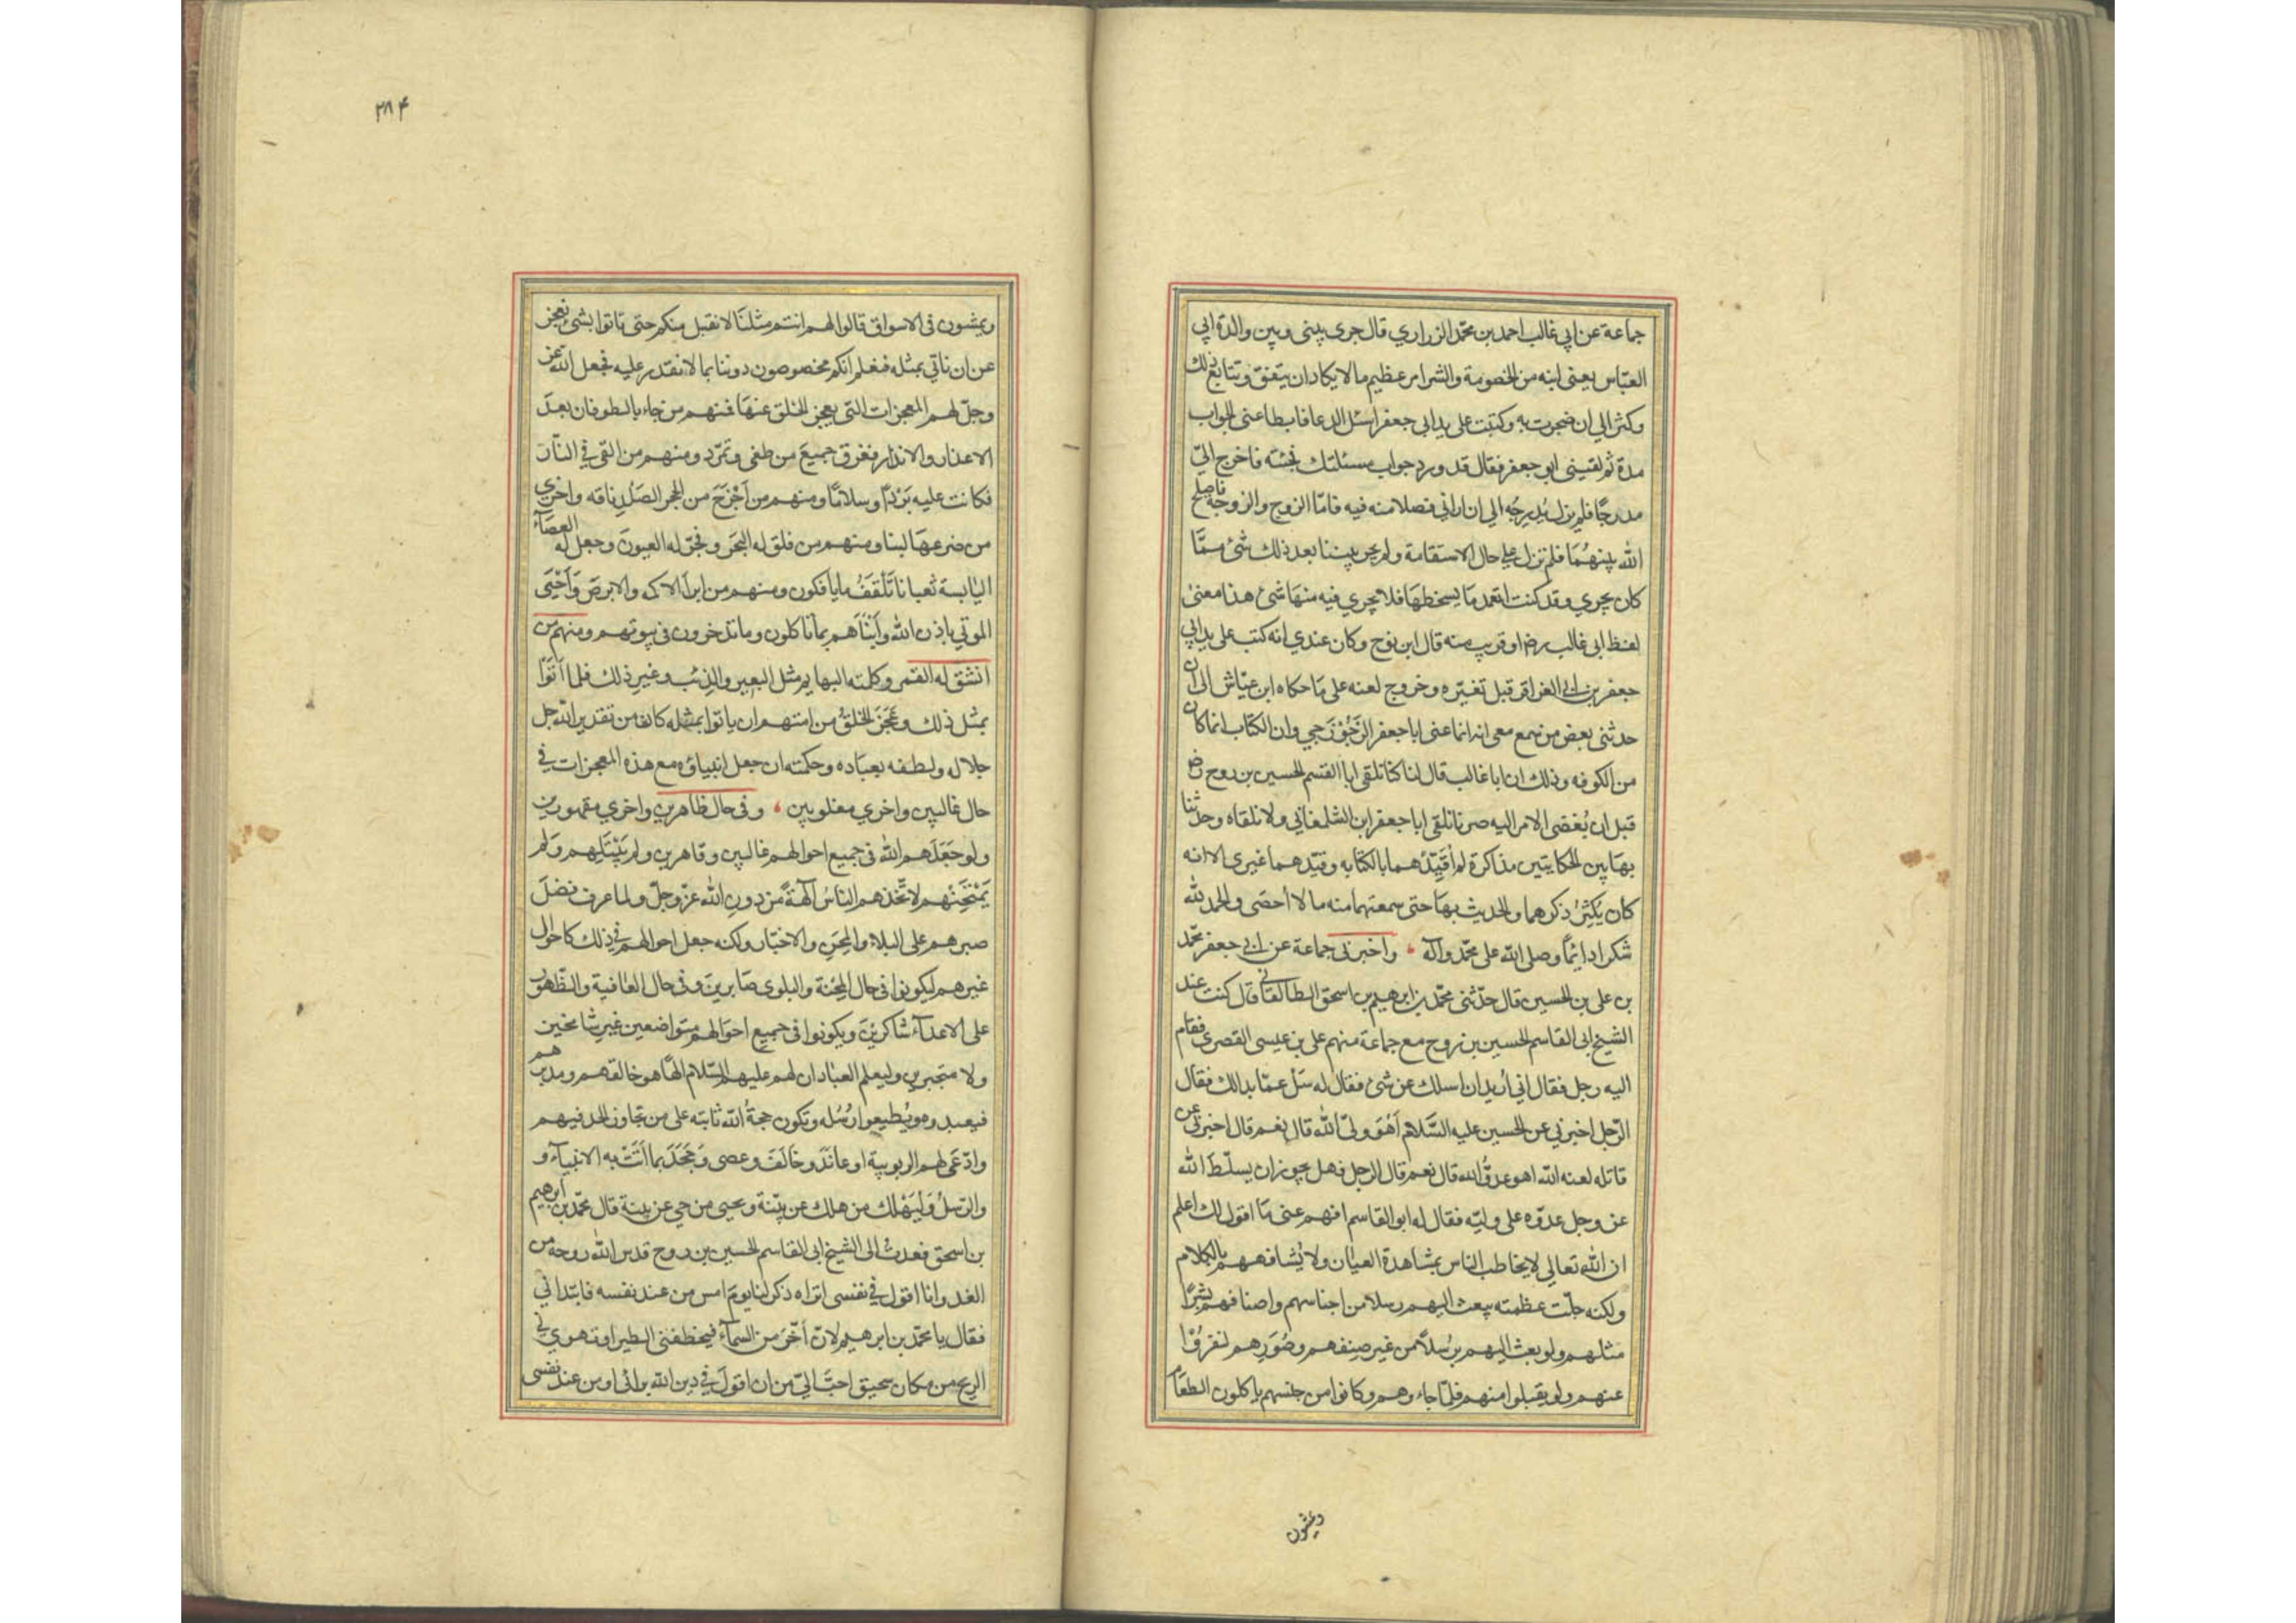 جماعة عن ابي غالب احمد بن محمّد الزراري قال جرى بيني وبين والدة ابي
العبّاس يعنى ابنه من الخصومة والشر امر عظيم ما لا يكاد ان يتفق وتتابع ذلك
وكثر الي ان ضجرت به وكتبت على يد ابي جعفر اسئل الدعا فابطا عنى الجواب
مدة ثم لقيني ابو جعفر فقال قد ورد جواب مسئلتك فجئته فاخرج اليّ
مدرجًا فلم يزل يُدرِجُه الي ان اراني فصلا منه فيه فامّا الزوج والزوجة فاصلح
الله بينهُمَا فلم تزل علي حال الاستقامة ولم يجر بيننا بعد ذلك شئ ممّا
كان يجري وقد كنت اتعمد مَا يسخطهَا فلا يجري فيه منهَا شئ هذا معنىٰ
لفظ ابى غالب رضہ او قريب منه قال ابن نوح وكان عندي انه كتب على يد ابي
جعفر بن ابى العزاقر قبل تغيّره وخروج لعنه على مَا حكاه ابن عيّاش الى ان
حدثنى بعض من سمع معى انه انما عنى ابا جعفر الزَّجُوْزَجي وان الكتاب انما كان
من الكوفه وذلك ان ابا غالب قال لنا كنا نلقى ابا القسم الحسين بن روح رض
قبل ان يُفضى الامر اليه صرنا نلقى ابا جعفر ابن الشلمغاني ولا نلقاه وحدثنا
بهَاتين الحكايتين مذاكرة لم اُقَيِّدْهما بالكتابه وقيّدهما غيرى الا انه
كان يُكثِرُ ذكرهما والحديث بهَا حتى سمعتهما منه ما لا اُحصَى والحمد لله
شكرا دائمًا وصلى اللّه على محمّد وآله ، واخبرنى جماعة عن ابى جعفر محمّد
بن على بن الحسين قال حدّثنى محمّد بن ابرهيم بن اسحق الطالقاني قال كنت عند
الشيخ ابى القاسم الحسين بن روح مع جماعة منهم على بن عيسى القصرى فقام
اليه رجل فقال اني أريد ان اسلك عن شئ فقال له سَل عمّا بدا لك فقال
الرّجل اخبرني عن الحسين عليه السَّلام أهُوَ وليّ الله قال نعم قال اخبرني عن
قاتله لعنه اللّه اهو عدوُّ الله قال نعم قال الرجل فهل يجوز ان يسلّطَ الله
عز وجل عدوّه على وليّه فقال له ابو القاسم افهم عنى مَا اقول لك اعلم
ان اللّه تعالى لا يخاطب الناس بمشاهدة العيٰان ولا يُشافههم بالكلام
ولكنه جلّت عظمته يبعث اليهم رسلا من اجناسهم واصنافهم بشرًا
مثلهم ولو بعث اليهم رُسُلاً من غير صِنفهم وصُوَرِهم لنفرُوْا
عنهم ولم يقبلوا منهم فلمّا جاءوهم وكانوا من جنسهم ياكلون الطعَام
ويمشون
۲۸۴
ويمشون فى الاسواق قالوا لهم انتم مثلنَا لا نقبل منكم حتى تاتوا بشئ نعجز
عن ان ناتي بمثله فنعلم انكم مخصوصون دوننا بما لا نقدر عليه فجعل اللّه عز
وجلّ لهم المعجزات التى يعجز الخلق عنهَا فمنهم من جَاء بالطوفان بعدَ
الاعذار والانذار فغرق جميعَ من طغى وتمرّد ومنهم من القى في النّار
فكانت عليه بَرْدًا وسلامًا ومنهم من اَخْرَجَ من الحجر الصَلْدِ ناقه واجرى
من ضرعهَا لبنا ومنهم من فلق له البحَر وفجّر له العيونَ وجعل له العصَاء
اليٰابسة ثعبانا تَلْقَفُ ما يافكون ومنهم من ابرأ الاكمه والابرصَ وَاَحْيَى
الموتي باذن الله وَاَنْبَأهم بما تاكلون وما تدخرون فى بيوتهم ومنهم من
انشق له القمر وكلمته البهايم مثل البعير والذئب وغير ذلك فلما اَتَوْا
بمثل ذلك وعَجَزَ الخلقُ من امتهم ان ياتوا بمثله كان من تقدير اللّه جل
جلاله ولطفه بعبَاده وحكمته ان جعل انبياؤه مع هذه المعجزات في
حال غالبين واخري مغلوبين ، وفى حال ظاهرين واخري مقهورين
ولو جَعَلَهم الله فى جميع احوالهم غالبين وقاهرين ولم يَبْتَلِهم وَلم
يَمْتَحِنْهم لاتّخذهم الناسُ آلهةً من دون الله عزّ وجلّ ولما عرف فضلَ
صبرهم على البلاء والمِحَنِ والاختبار ولكنه جعل احوالهم في ذلك كاحوال
غيرهم ليكونوا فى حال المِحْنة والبلوى صَابرينَ وفى حال العٰافية والظّهور
على الاعداءِ شاكرينَ ويكونوا فى جميع احوَالهم متواضعين غير شامخين
ولا متجبرين وليعلم العبادان لهم عليهم السّلام الهًا هو خالقهم ومدبرهم
فيعبدوه ويُطيعوا رُسُله وتكون حجةُ اللّه ثابته على من تجاوز الحد فيهم
وادّعَى لهم الربوبية او عَاندَ وخَالَفَ وعصى وَجَحَدَ بما اَتَتْ به الانبيآء و
والرّسلُ وَلْيَهْلك من هلك عن بيّنة ويحيى من حي عن بينة قال محمّد بن ابرهيم
بن اسحق فعدتُ الى الشيخ ابى القاسم الحسين بن روح قدس اللّه روحه من
الغد وانا اقول في نفسى اتراه ذكر لنا يومَ امس من عند نفسه فابتداني
فقال يا محمّد بن ابرهيم لان اَخّرَ من السمآء فيخطفنى الطير او تهوي بي
الريح من مكان سحيق احبّ اليّ من ان اقولَ في دين اللّه برائى او من عند نفسى